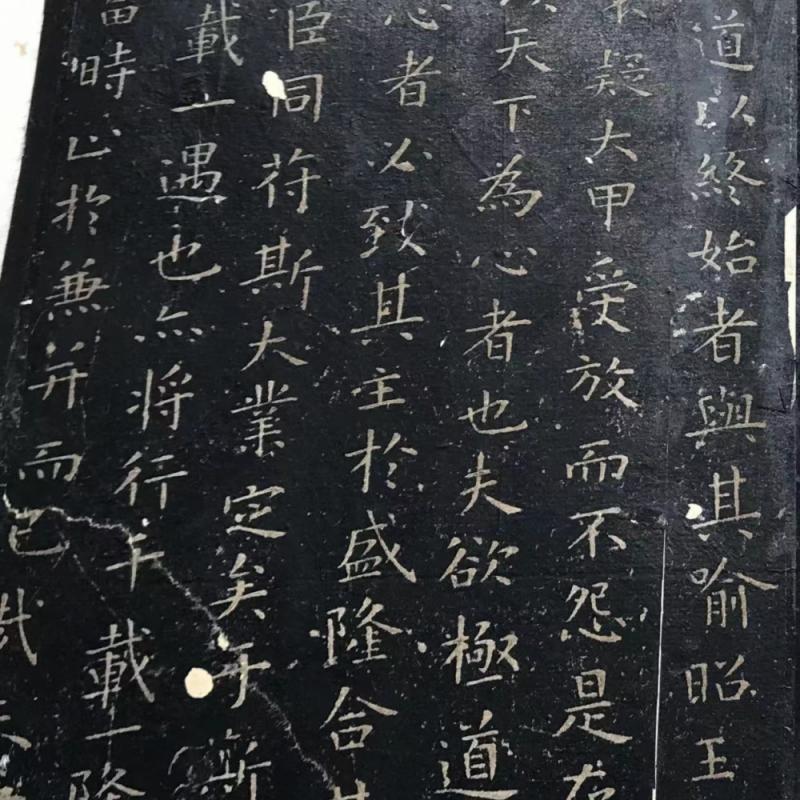 道以終始者與其喻昭王
疑大甲受放而不怨是
天下為心者也夫欲極道
心者必致其主於盛隆合
臣同符斯大業定矣于斯
載一遇也亦將行千載一隆
當時止於兼并而已哉